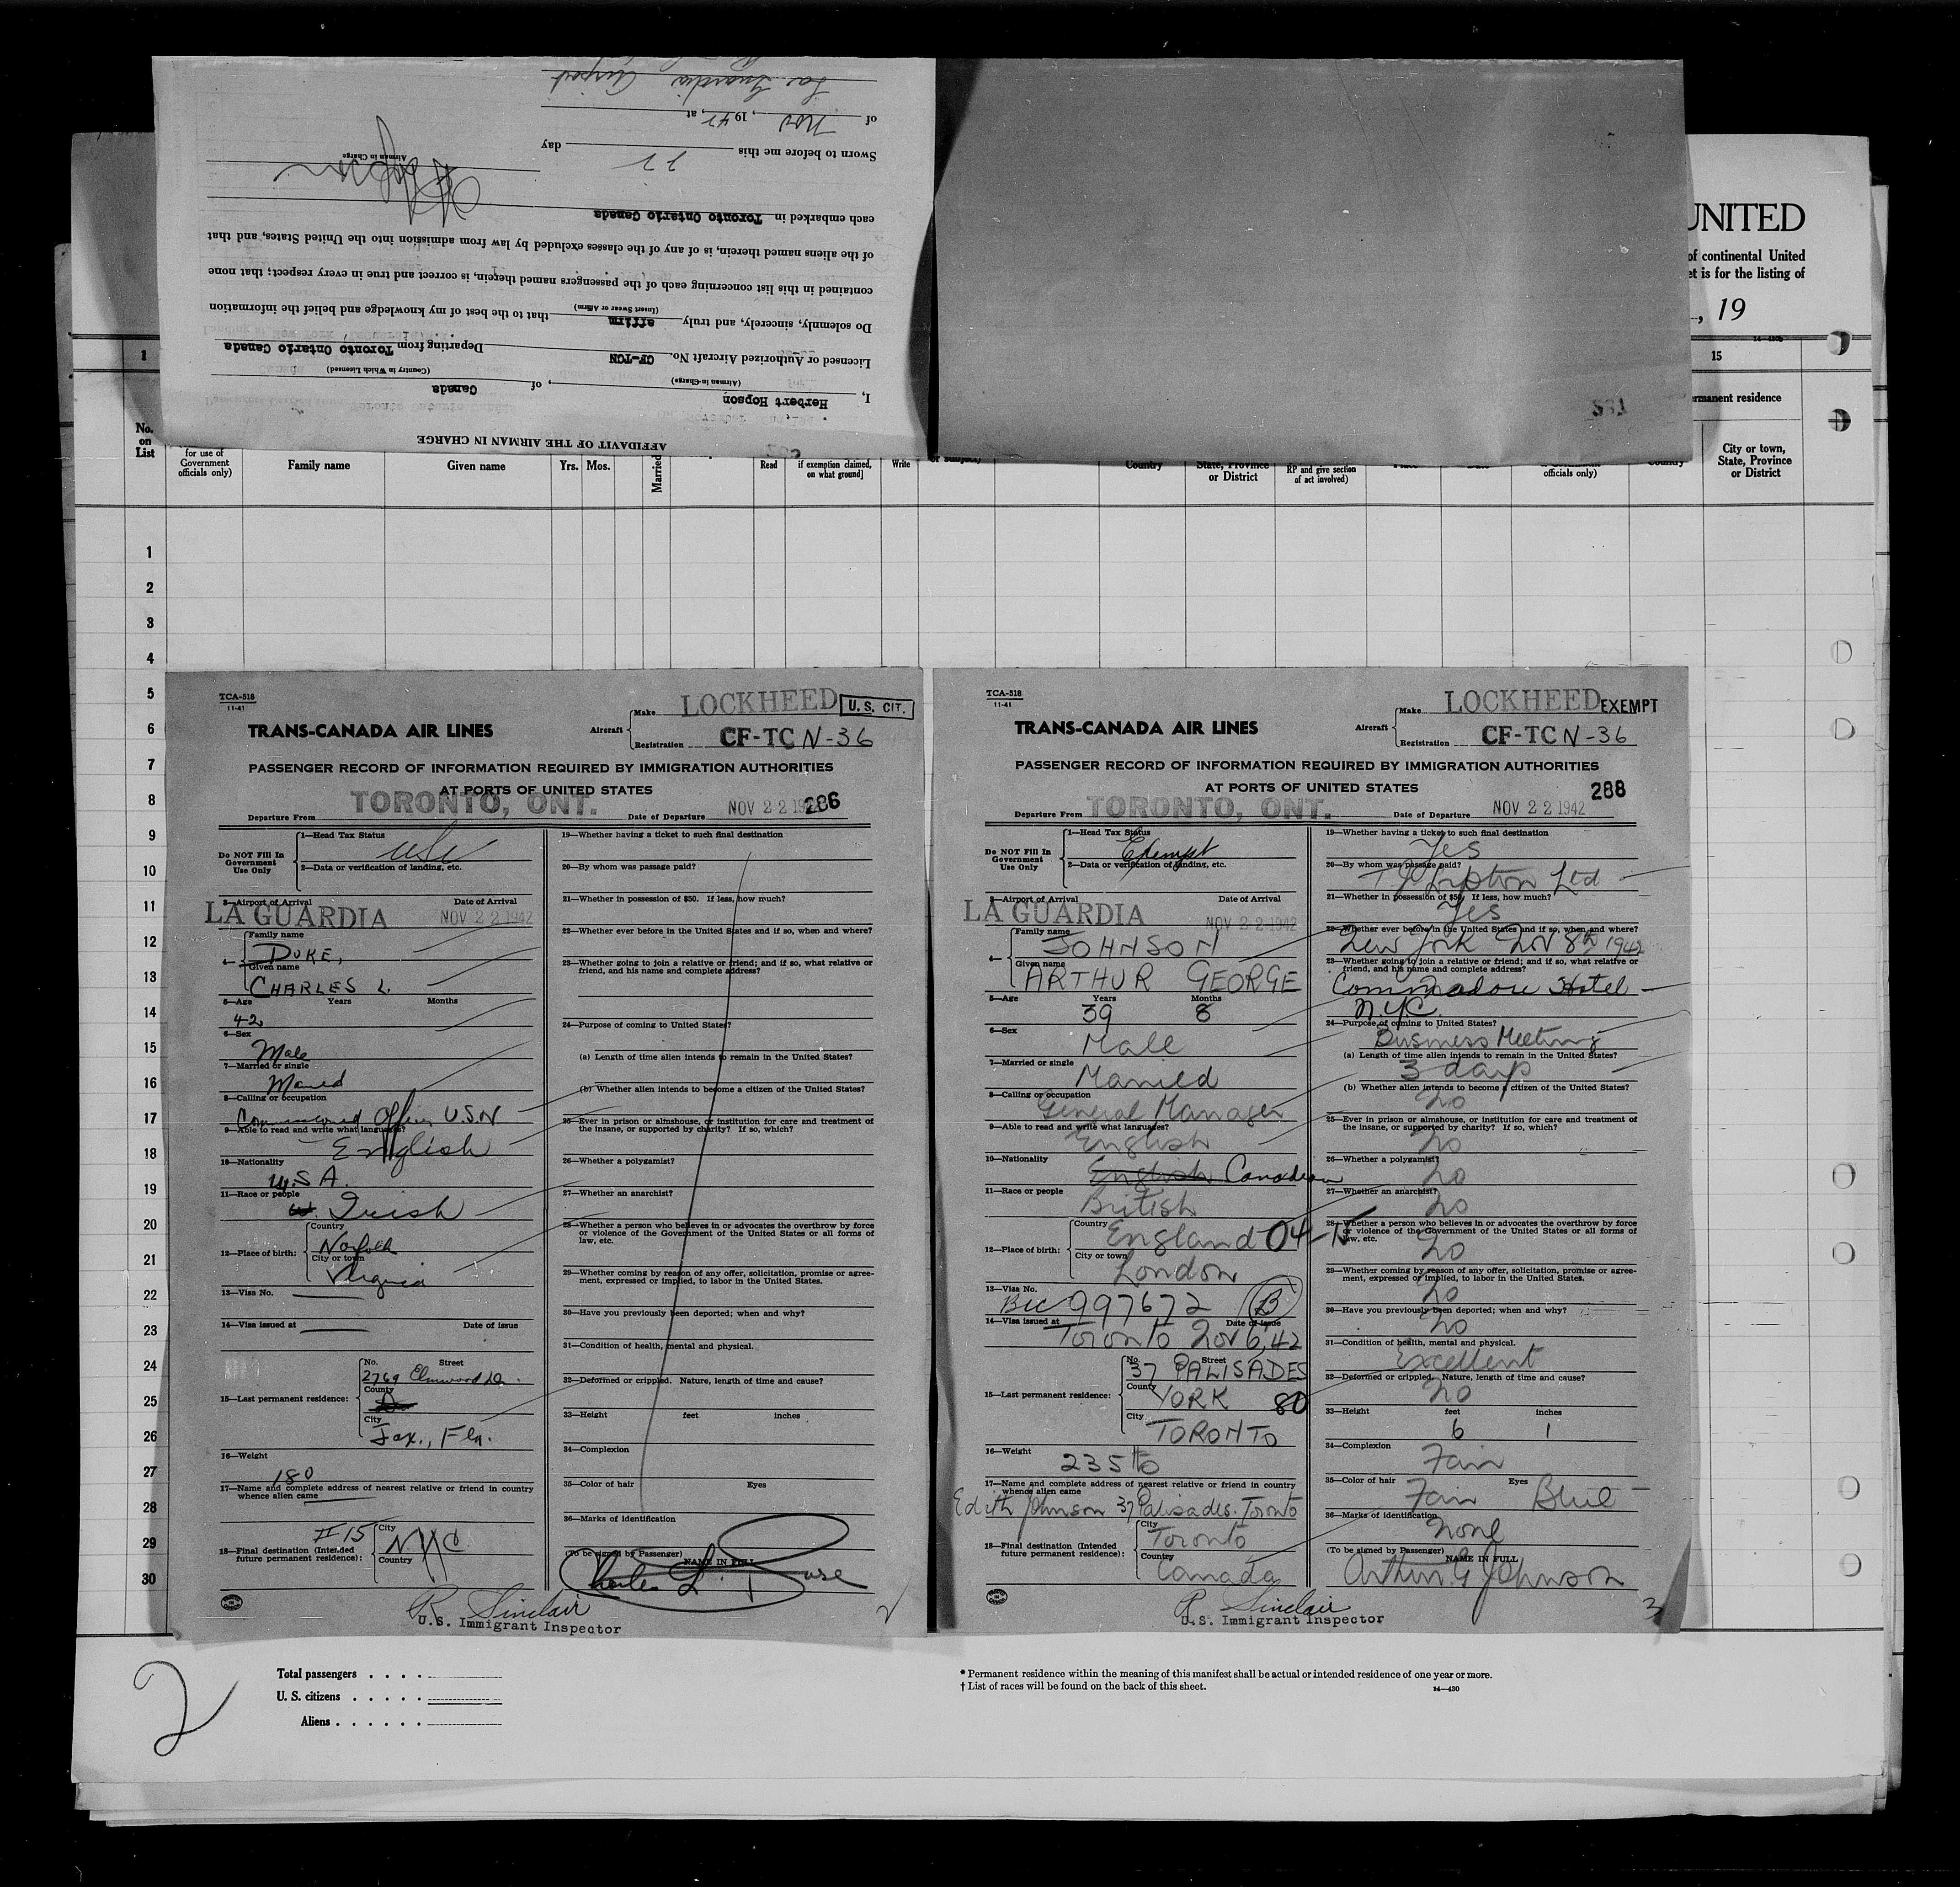 AFFIDAVIT OF THE AIRMAN IN CHARGE
I, Herbert Hopson, of Canada
(Airman in Charge) (Country in Which Licensed)
Licensed or Authorized Aircraft No. CF-TCN Departing from Toronto Ontario Canada
Do solemnly, sincerely, and truly affirm that to the best of my knowledge and belief the information
(Insert Swear or Affirm)
contained in this list concerning each of the passengers named therein, is correct and true in every respect; that none
of the aliens named therein, is of any of the classes excluded by law from admission into the United States, and that
each embarked in Toronto Ontario Canada
Airman in Charge
Sworn to before me this 22 day
of Nov, 1942, at
La Guardia Airport
UNITED
of continental United
et is for the listing of
, 19
14—430b
1
15
ermanent residence
No. on List
for use of Government officials only)
Family name
Given name
Yrs.
Mos.
Married
Read
if exemption claimed, on what ground]
Write
or subject)
Country
State, Province or District
RP and give section of act involved)
officials only)
Country
City or town, State, Province or District
1
2
3
4
5
6
7
8
9
10
11
12
13
14
15
16
17
18
19
20
21
22
23
24
25
26
27
28
29
30
TCA-518
11-41
TRANS-CANADA AIR LINES
Aircraft
Make LOCKHEED
U. S. CIT.
Registration CF-TC N-36
PASSENGER RECORD OF INFORMATION REQUIRED BY IMMIGRATION AUTHORITIES
AT PORTS OF UNITED STATES
286
Departure From TORONTO, ONT. Date of Departure NOV 22 19
Do NOT Fill In Government Use Only
1—Head Tax Status
USC
2—Data or verification of landing, etc.
3—Airport of Arrival Date of Arrival
LA GUARDIA NOV 22 1942
4— Family name
DUKE,
Given name
CHARLES L.
5—Age Years Months
42
6—Sex
Male
7—Married or single
Married
8—Calling or occupation
Commissioned Officer U.S.N
9—Able to read and write what languages?
English
10—Nationality
U.S.A.
11—Race or people
Irish
12—Place of birth: Country
Norfolk
City or town
Virginia
13—Visa No.
14—Visa issued at Date of issue
15—Last permanent residence: No. Street
2769 Elmwood Dr.
County
City
Jax., Fla.
16—Weight
180
17—Name and complete address of nearest relative or friend in country whence alien came
II 15
18—Final destination (Intended future permanent residence): City
NYC
Country
19—Whether having a ticket to such final destination
20—By whom was passage paid?
21—Whether in possession of $50. If less, how much?
22—Whether ever before in the United States and if so, when and where?
23—Whether going to join a relative or friend; and if so, what relative or friend, and his name and complete address?
24—Purpose of coming to United States?
(a) Length of time alien intends to remain in the United States?
(b) Whether alien intends to become a citizen of the United States?
25—Ever in prison or almshouse, or institution for care and treatment of the insane, or supported by charity? If so, which?
26—Whether a polygamist?
27—Whether an anarchist?
28—Whether a person who believes in or advocates the overthrow by force or violence of the Government of the United States or all forms of law, etc.
29—Whether coming by reason of any offer, solicitation, promise or agreement, expressed or implied, to labor in the United States.
30—Have you previously been deported; when and why?
31—Condition of health, mental and physical.
32—Deformed or crippled. Nature, length of time and cause?
33—Height feet inches
34—Complexion
35—Color of hair Eyes
36—Marks of identification
(To be signed by Passenger) NAME IN FULL
Charles L. Duke
R. Sinclair
U.S. Immigrant Inspector
2
TCA-518
11-41
TRANS-CANADA AIR LINES
Aircraft
Make LOCKHEED
EXEMPT
Registration CF-TC N-36
PASSENGER RECORD OF INFORMATION REQUIRED BY IMMIGRATION AUTHORITIES
AT PORTS OF UNITED STATES
288
Departure From TORONTO, ONT. Date of Departure NOV 22 1942
Do NOT Fill In Government Use Only
1—Head Tax Status
Exempt
2—Data or verification of landing, etc.
3—Airport of Arrival Date of Arrival
LA GUARDIA NOV 22 1942
4— Family name
JOHNSON
Given name
ARTHUR GEORGE
5—Age Years Months
39 8
6—Sex
Male
7—Married or single
Married
8—Calling or occupation
General Manager
9—Able to read and write what languages?
English
10—Nationality
English Canadian
11—Race or people
British
12—Place of birth: Country
England 04-15
City or town
London
13—Visa No.
BIC 997672 B
14—Visa issued at Date of issue
Toronto Nov 6, 42
15—Last permanent residence: No. Street
37 PALISADES
County
YORK 80
City
TORONTO
16—Weight
235 lb
17—Name and complete address of nearest relative or friend in country whence alien came
Edith Johnson 37 Palisades. Toronto
18—Final destination (Intended future permanent residence): City
Toronto
Country
Canada
19—Whether having a ticket to such final destination
Yes
20—By whom was passage paid?
T. J. Lipton Ltd
21—Whether in possession of $50. If less, how much?
Yes
22—Whether ever before in the United States and if so, when and where?
New York Nov 8th 1942
23—Whether going to join a relative or friend; and if so, what relative or friend, and his name and complete address?
Commodore Hotel
N.Y.C.
24—Purpose of coming to United States?
Business Meeting
(a) Length of time alien intends to remain in the United States?
3 days
(b) Whether alien intends to become a citizen of the United States?
No
25—Ever in prison or almshouse, or institution for care and treatment of the insane, or supported by charity? If so, which?
No
26—Whether a polygamist?
No
27—Whether an anarchist?
No
28—Whether a person who believes in or advocates the overthrow by force or violence of the Government of the United States or all forms of law, etc.
No
29—Whether coming by reason of any offer, solicitation, promise or agreement, expressed or implied, to labor in the United States.
No
30—Have you previously been deported; when and why?
No
31—Condition of health, mental and physical.
Excellent
32—Deformed or crippled. Nature, length of time and cause?
No
33—Height feet inches
6 1
34—Complexion
Fair
35—Color of hair Eyes
Fair Blue
36—Marks of identification
None
(To be signed by Passenger) NAME IN FULL
Arthur G Johnson
R. Sinclair
U.S. Immigrant Inspector
3
2
Total passengers . . . .
U. S. citizens . . . . .
Aliens . . . . . .
* Permanent residence within the meaning of this manifest shall be actual or intended residence of one year or more.
† List of races will be found on the back of this sheet.
14—430